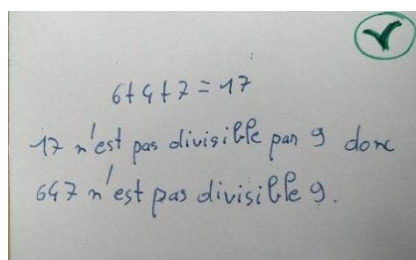 6+4+7=17
17 n'est pas divisible par 9 donc
647 n'est pas divisible 9.